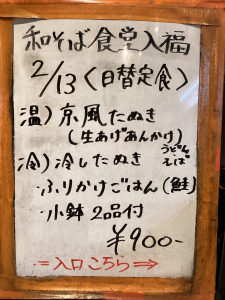 和そば食堂入福
2/13〈日替定食〉
温）京風たぬき
（生あげあんかけ）
うどん
そば
冷）冷したぬき
・ふりかけごはん（鮭）
・小鉢2品付
¥900-
＝入口こちら⇒